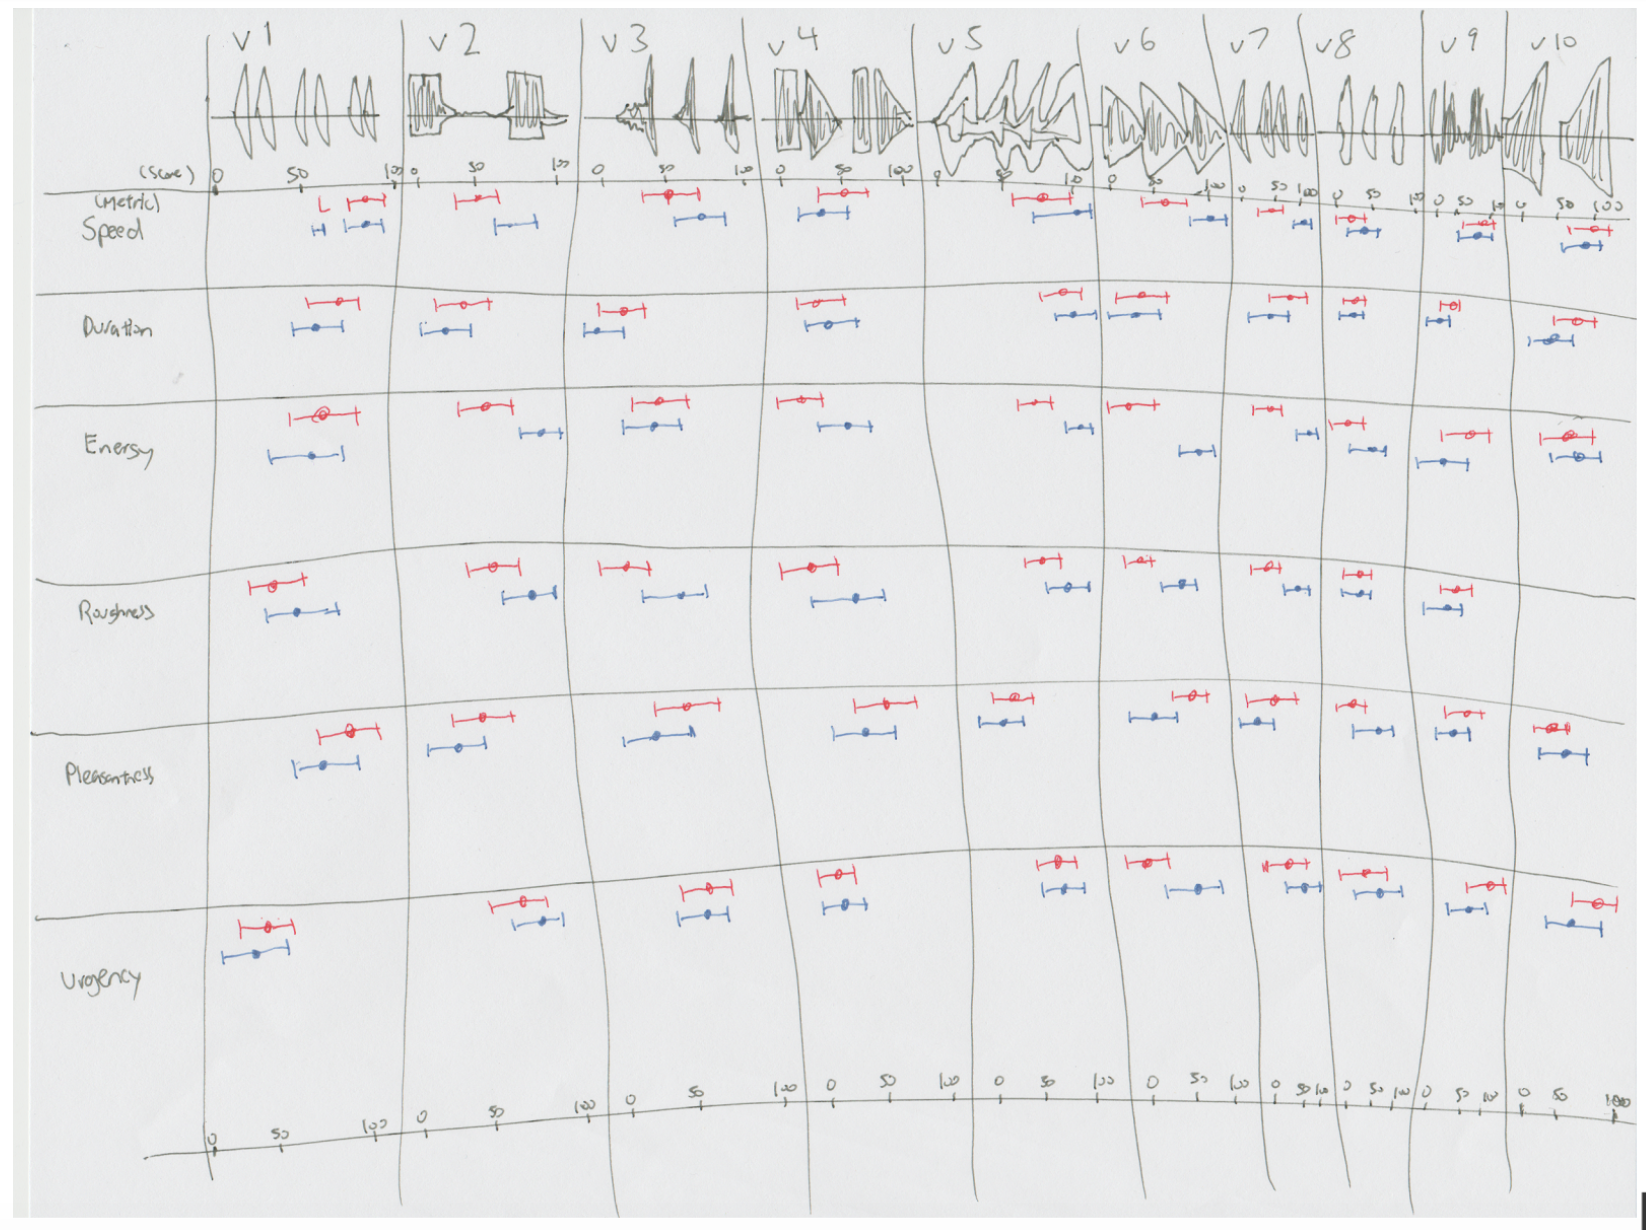 v1 v2 v3 v4 v5 v6 v7 v8 v9 v10
(Score) 0 50 100 0 50 100 0 50 100 0 50 100 0 50 100 0 50 100 0 50 100 0 50 100 0 50 100 0 50 100
(Metric)
Speed
Duration
Energy
Roughness
Pleasantness
Urgency
0 50 100 0 50 100 0 50 100 0 50 100 0 50 100 0 50 100 0 50 100 0 50 100 0 50 100 0 50 100